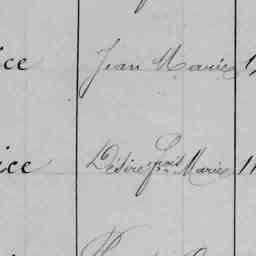 ice Jean Marie 1
ice Désiré fçois Marie 1